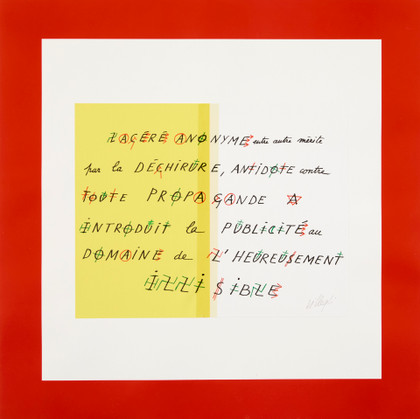 LACÉRÉ ANONYME entre autre mérite
par la DÉCHIRURE, ANTIDOTE contre
TOUTE PROPAGANDE A
INTRODUIT la PUBLICITÉ au
DOMAINE de L'HEUREUSEMENT
ILLISIBLE